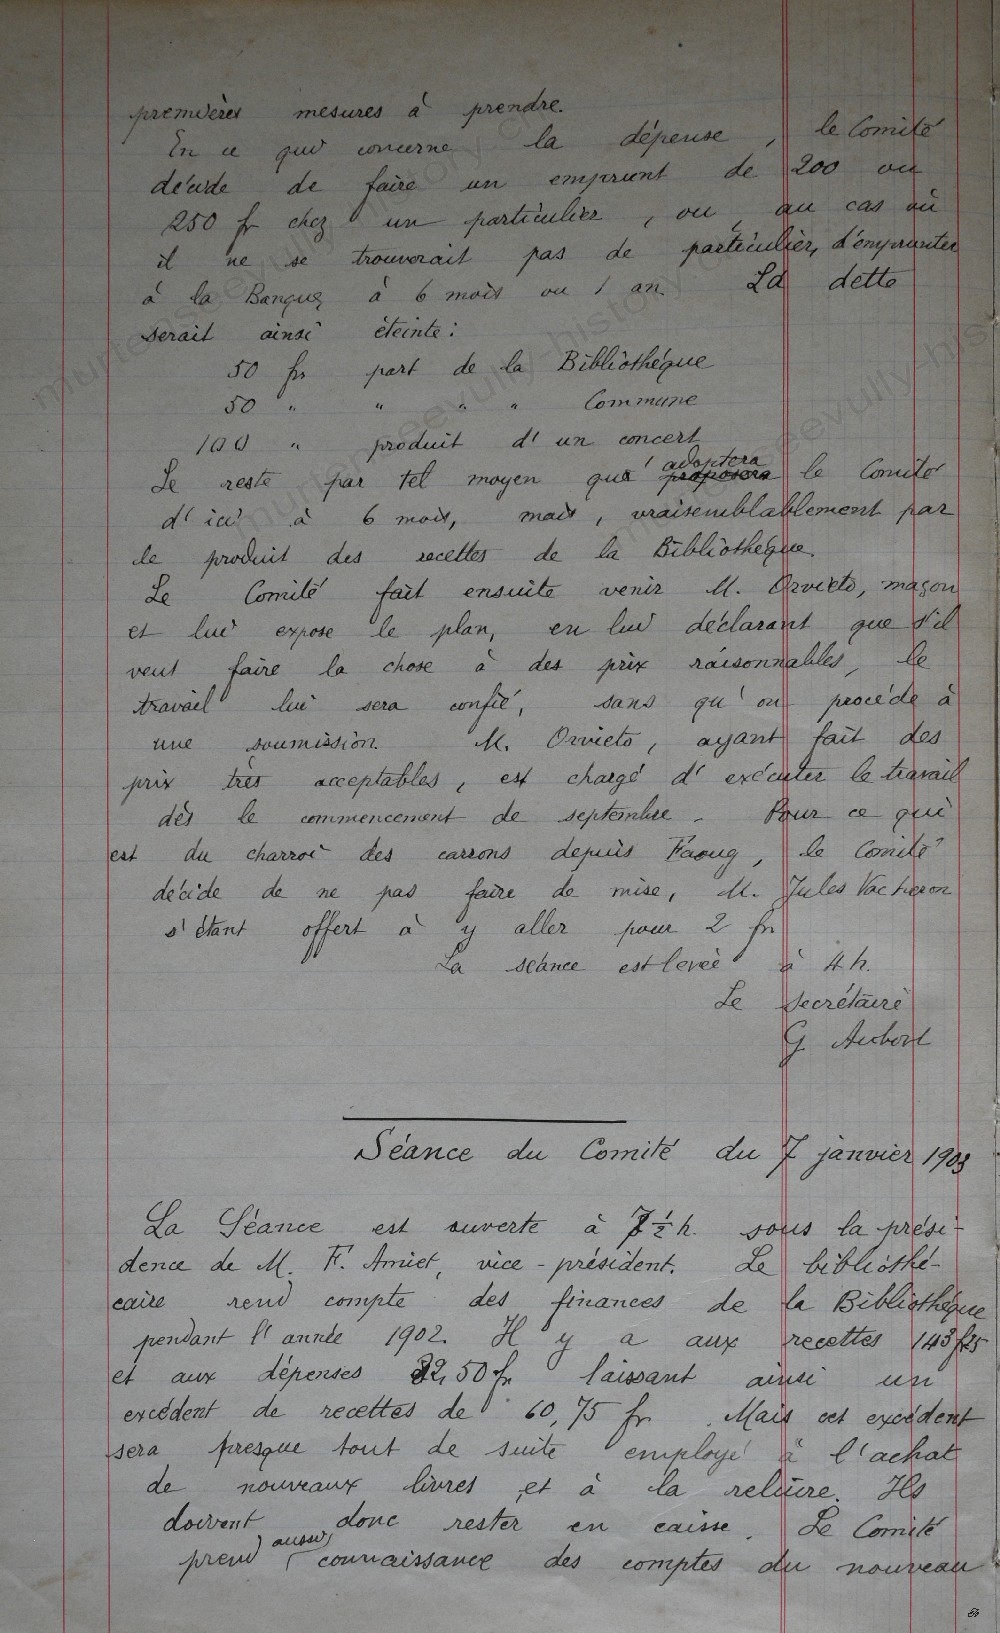 premières mesures à prendre.
En ce qui concerne la dépense, le Comité
décide de faire un emprunt de 200 ou
250 fr chez un particulier, ou, au cas où
il ne se trouverait pas de particulier, d'emprunter
à la Banque, à 6 mois ou 1 an. La dette
serait ainsi éteinte:
50 frs part de la Bibliothèque
50 " " " " Commune
100 " produit d'un concert
Le reste par tel moyen qu' adoptera le Comité
d'ici à 6 mois, mais, vraisemblablement par
le produit des recettes de la Bibliothèque.
Le Comité fait ensuite venir M. Orvieto, maçon
et lui expose le plan, en lui déclarant que s'il
veut faire la chose à des prix raisonnables, le
travail lui sera confié, sans qu'on procède à
une soumission. M. Orvieto, ayant fait des
prix très acceptables, est chargé d'exécuter le travail
dès le commencement de septembre. Pour ce qui
est du charroi des carrons depuis Faoug, le Comité
décide de ne pas faire de mise, M. Jules Vacheron
s'étant offert à y aller pour 2 fr
La séance est levée à 4 h.
Le secrétaire
G
Séance du Comité du 7 janvier 1903
La Séance est ouverte à 7 ½ h. sous la prési-
dence de M. F. Amiet, vice-président. Le bibliothé-
caire rend compte des finances de la Bibliothèque
pendant l'année 1902. Il y a aux recettes 143 f 25
et aux dépenses 82,50 fr laissant ainsi un
excédent de recettes de 60,75 fr. Mais cet excédent
sera presque tout de suite employé à l'achat
de nouveaux livres et à la reliure. Ils
doivent donc rester en caisse. Le Comité
prend aussi connaissance des comptes du nouveau